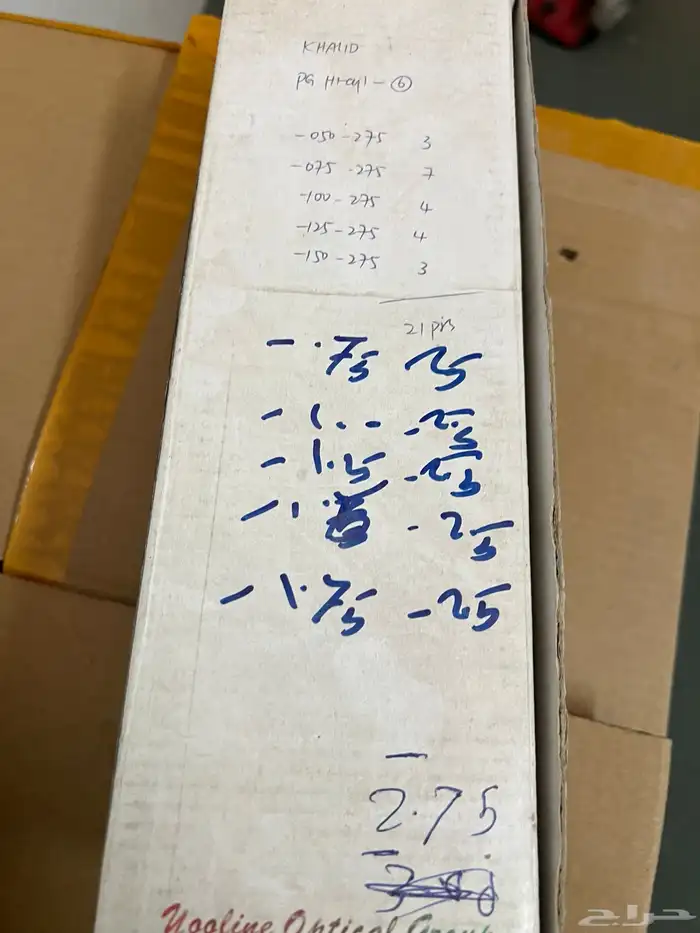 KHALID
PG H-cyl - ⑥
-050 -275 3
-075 -275 7
-100 - 275 4
-125 - 275 4
-150 - 275 3
21 prs
- .75 25
- 1.- -2.5
- 1.5 -2.5
- 1. - 25
- 1.75 - 25
-
2.75
-
Optical Group
حراج